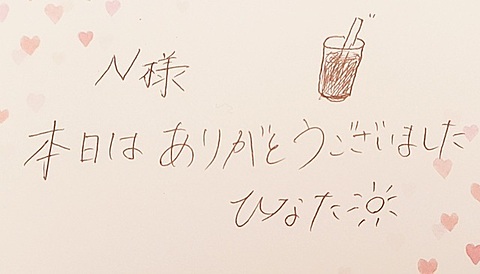 N様
本日は ありがとうございました
ひなた